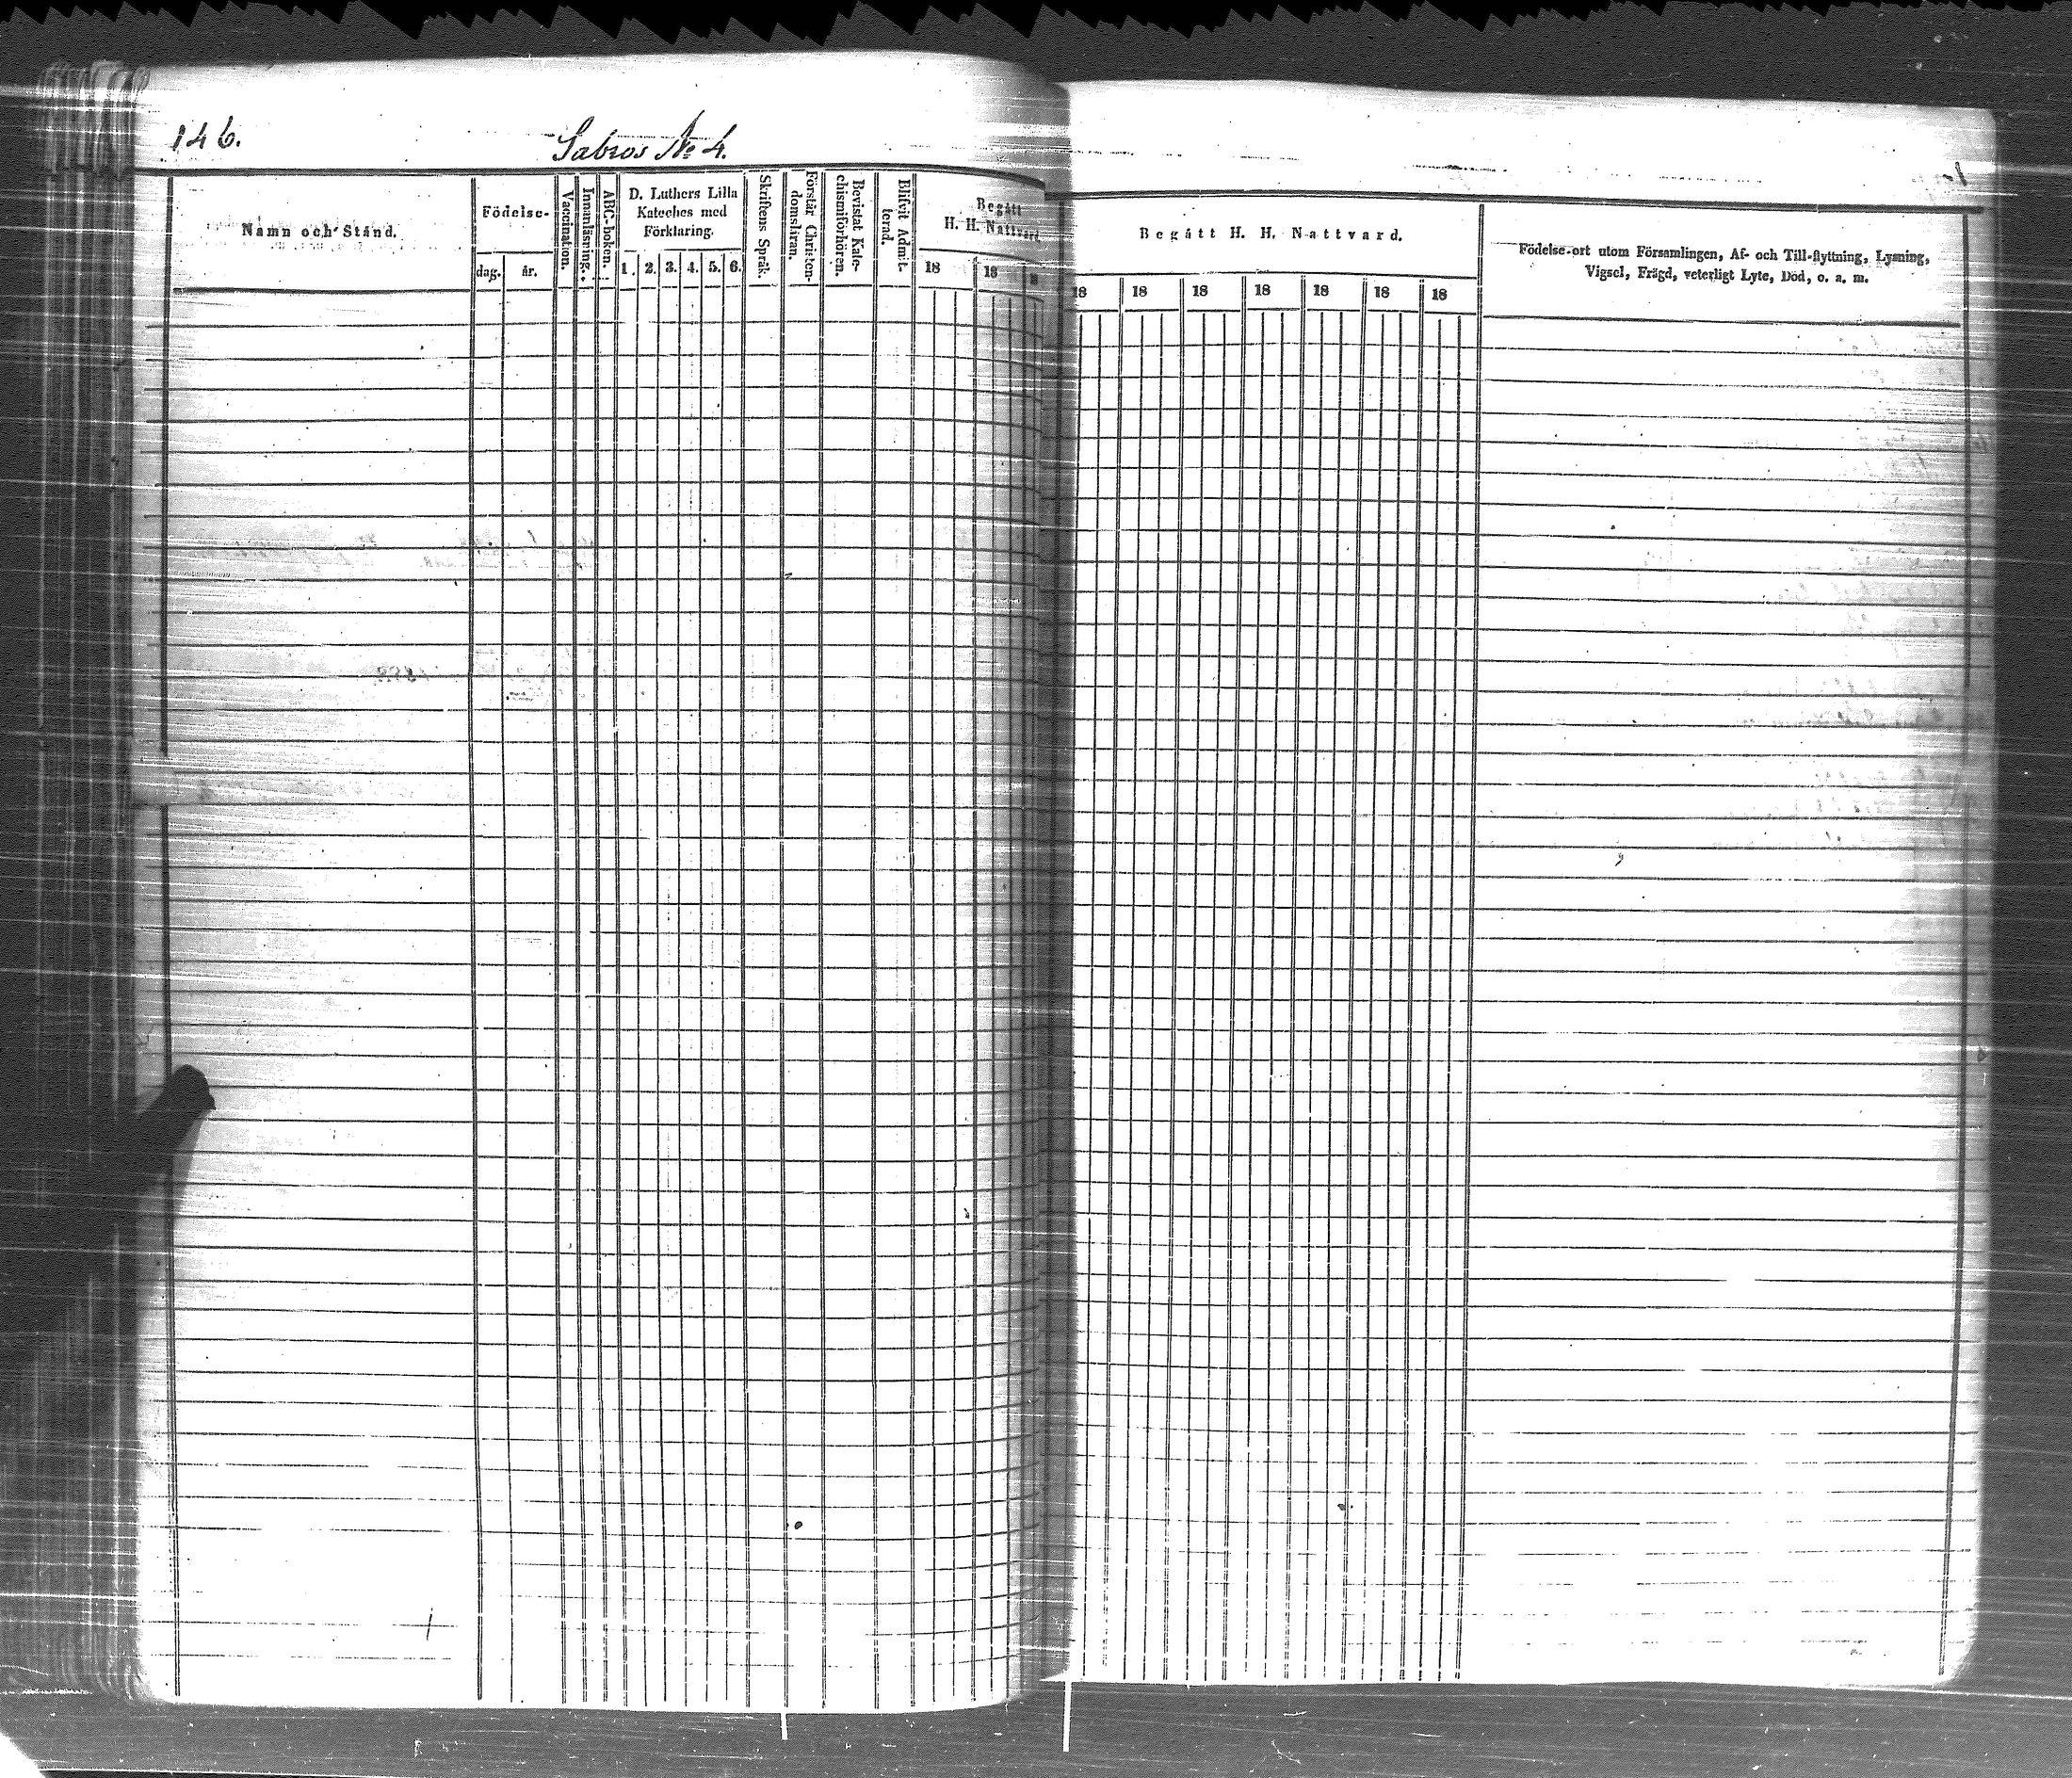 146.
Sabros No 4.
Namn och Stånd.
Födelse-
dag.
år.
Vaccination.
Innanläsning.
ABC-boken.
D. Luthers Lilla
Kateches med
Förklaring.
1. 2. 3. 4. 5. 6.
Skriftens Språk.
Förstår Christen-
domsläran.
Bevistat Kate-
chismiförhören.
Blifvit Admit-
terad.
Begått
H. H. Nattvard.
18 18
Begått H. H. Nattvard.
18 18 18 18 18 18 18
Födelse-ort utom Församlingen, Af- och Till-flyttning, Lysning,
Vigsel, Frägd, veterligt Lyte, Död, o. a. m.